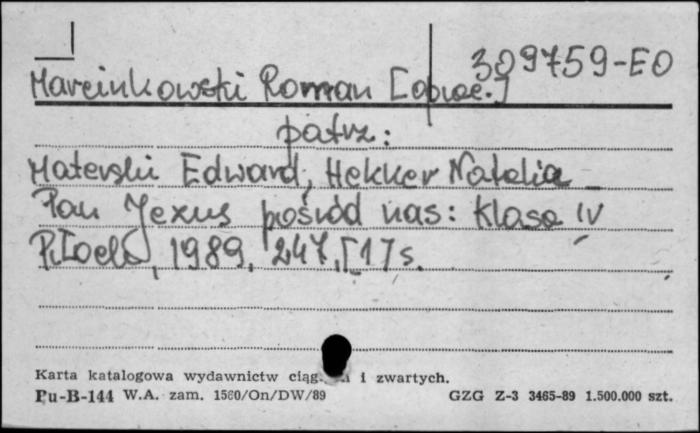 309759-EO
Marcinkowski Roman [oprac.]
patrz:
Materski Edward, Hekker Natalia
Pan Jezus pośród nas: Klasa IV
Płock, 1989, 247, [1] s.
Karta katalogowa wydawnictw i zwartych.
Pu-B-144 W.A. zam. 1560/On/DW/89 GZG Z-3 3465-89 1.500.000 szt.